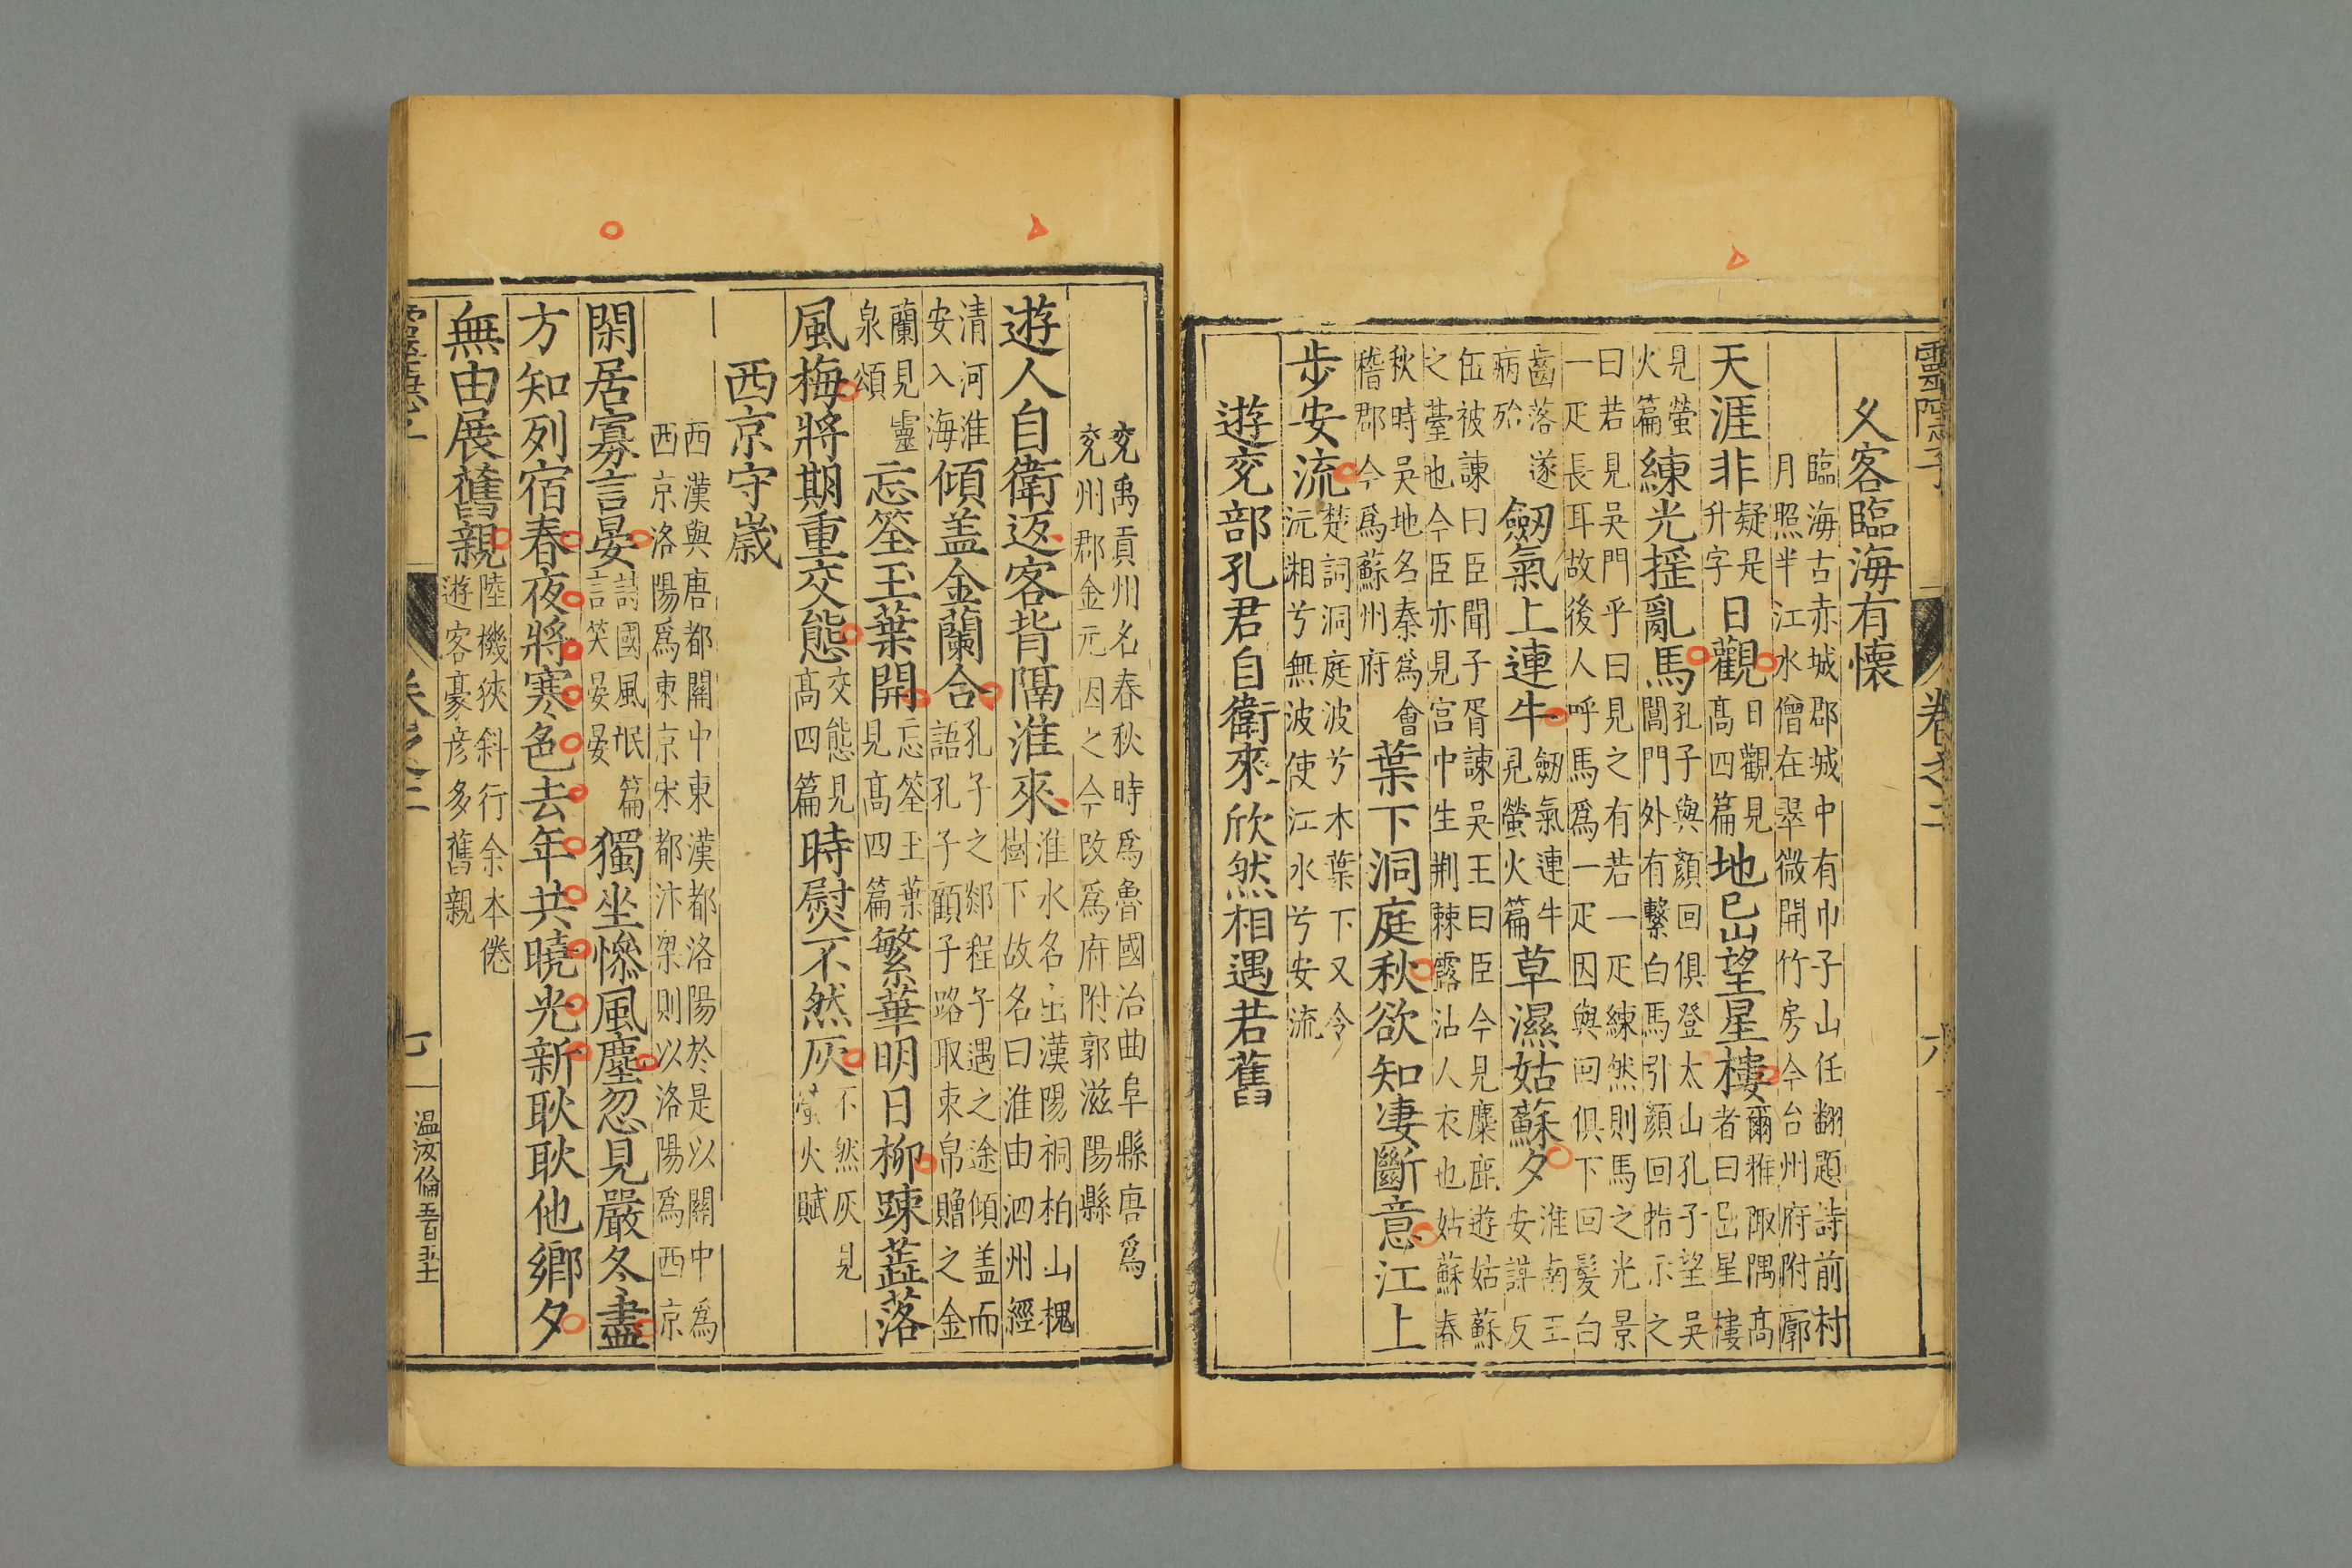 靈隱子
卷之二
六
久客臨海有懷
臨海古赤城郡城中有巾子山任翻題詩前村
月照半江水僧在翠微開竹房今台州府附廓
天涯非
疑是
升字
日觀
日觀見
高四篇
地已望星樓
爾雅陬隅高
者曰星樓
見螢
火篇
練光揺亂馬
孔子與顏回俱登太山孔子望吳
閶門外有繫白馬引顏回指示之
曰若見吳門乎曰見之有若一疋練然則馬之光景
一疋長耳故後人呼馬爲一疋因與回俱下回髪白
齒落遂
病殆
劒氣上連牛
劒氣連牛
見螢火篇
草濕姑蘇夕
淮南王
安諱反
缶被諫曰臣聞子胥諫吳王曰臣今見麋鹿遊姑蘇
之臺也今臣亦見宮中生荆棘露沾人衣也姑蘇春
秋時吳地名秦爲會
稽郡今爲蘇州府
葉下洞庭秋欲知凄斷意江上
步安流
楚詞洞庭波兮木葉下又令
沅湘兮無波使江水兮安流
遊兖部孔君自衛來欣然相遇若舊
兖禹貢州名春秋時爲魯國治曲阜縣唐爲
兖州郡金元因之今改爲府附郭滋陽縣
遊人自衛返客背隔淮來
淮水名出漢陽桐柏山槐
樹下故名曰淮由泗州經
清河淮
安入海
傾盖金蘭合
孔子之郯程子遇之途傾盖而
語孔子顧子路取束帛贈之金
蘭見靈
泉頌
忘筌玉葉開
忘筌玉葉
見高四篇
繁華明日柳踈蘂落
風梅將期重交態
交態見
高四篇
時熨不然灰
不然灰見
螢火賦
西京守嵗
西漢與唐都關中東漢都洛陽於是以關中爲
西京洛陽爲東京宋都汴梁則以洛陽爲西京
閑居寡言晏
詩國風氓篇
言笑晏晏
獨坐慘風塵忽見嚴冬盡
方知列宿春夜將寒色去年共曉光新耿耿他鄉夕
無由展舊親
陸機狹斜行余本倦
遊客豪彦多舊親
卷之二
七
温汝倫五百五十